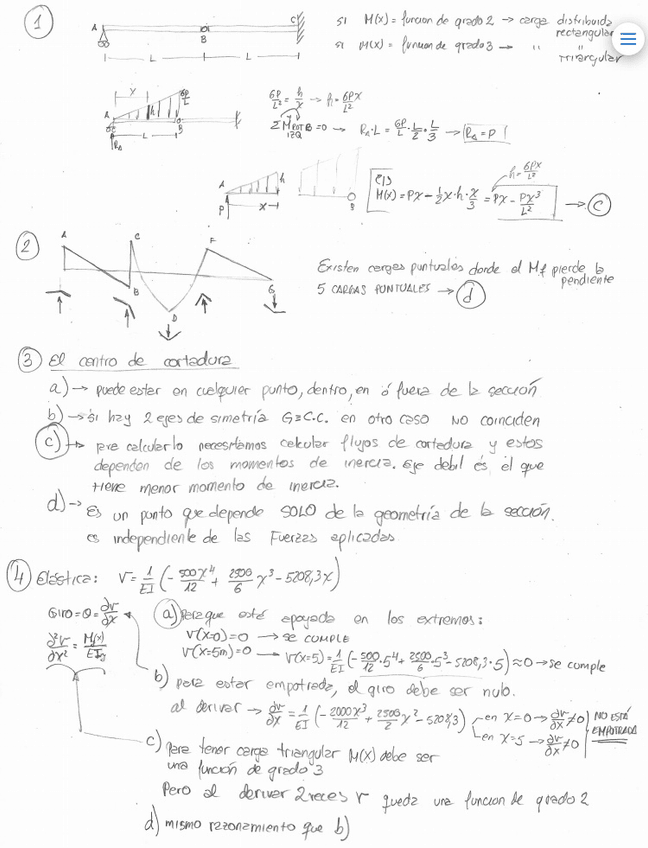 1
A
B
C
L
L
si M(x) = funcion de grado 2 → carga distribuida rectangular
si M(x) = funcion de grado 3 → " " triangular
6P/L
h
A
B
L
R_A
6P/L² = h/x → h = 6Px/L²
ΣM_B = 0 → R_A·L = 6P/L · L/2 · L/3 → R_A = P
A
P
x
h
B
h = 6Px/L²
M(x) = Px - 1/2 x·h·x/3 = Px - Px³/L² → C
2
A
B
C
D
F
G
Existen cargas puntuales donde el Mf pierde la pendiente
5 CARGAS PUNTUALES → d
3 El centro de cortadura
a) → puede estar en cualquier punto, dentro, en ó fuera de la sección
b) → si hay 2 ejes de simetría G≡C.C. en otro caso NO coinciden
c) → para calcularlo necesitamos calcular flujos de cortadura y estos
dependen de los momentos de inercia. Eje debil es el que
tiene menor momento de inercia.
d) → Es un punto que depende SOLO de la geometría de la sección.
es independiente de las Fuerzas aplicadas
4 Elástica: v = 1/EI (-500x⁴/12 + 2500/6 x³ - 5208,3x)
Giro = θ = ∂v/∂x
∂²v/∂x² = M(x)/EI
a) Para que esté apoyada en los extremos:
v(x=0) = 0 → se CUMPLE
v(x=5m) = 0 → v(x=5) = 1/EI (-500/12·5⁴ + 2500/6·5³ - 5208,3·5) ≈ 0 → se cumple
b) para estar empotrada, el giro debe ser nulo.
al derivar → ∂v/∂x = 1/EI (-2000x³/12 + 2500/2 x² - 5208,3)
en x=0 → ∂v/∂x ≠ 0
en x=5 → ∂v/∂x ≠ 0
NO ESTÁ
EMPOTRADA
c) para tener carga triangular M(x) debe ser
una función de grado 3
Pero al derivar 2 veces v queda una funcion de grado 2
d) mismo razonamiento que b)